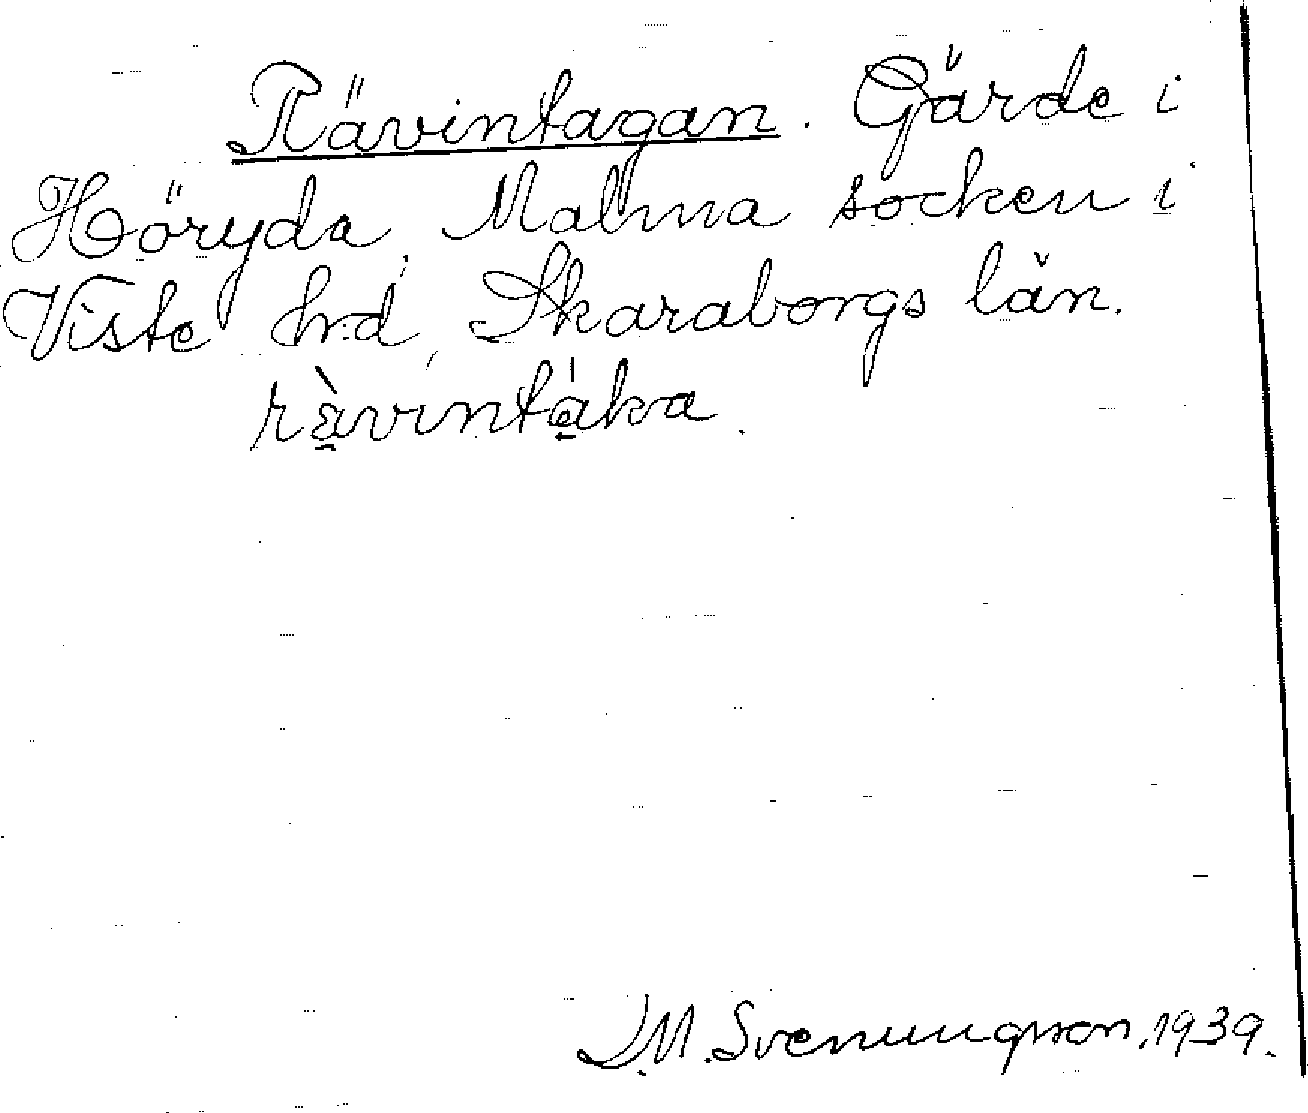 Rävintagan. Gärde i
Höryda, Malma socken i
Viste hrd, Skaraborgs län.
rävintáka.
J.M. Svenungsson, 1939.